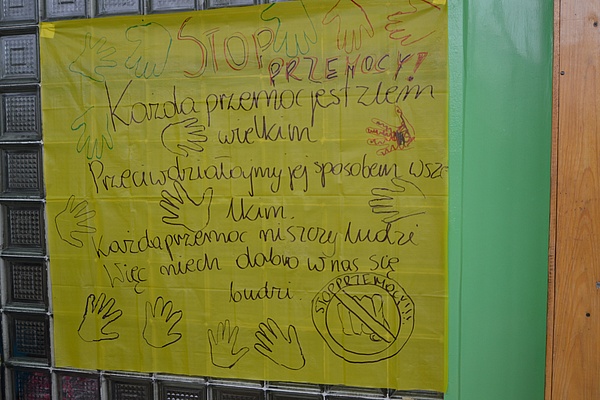 STOP
PRZEMOCY!
Każda przemoc jest złem
wielkim
Przeciwdziałajmy jej sposobem wsze-
lkim.
Każda przemoc niszczy ludzi
Więc niech dobro w nas się
budzi.
STOP PRZEMOCY!!!